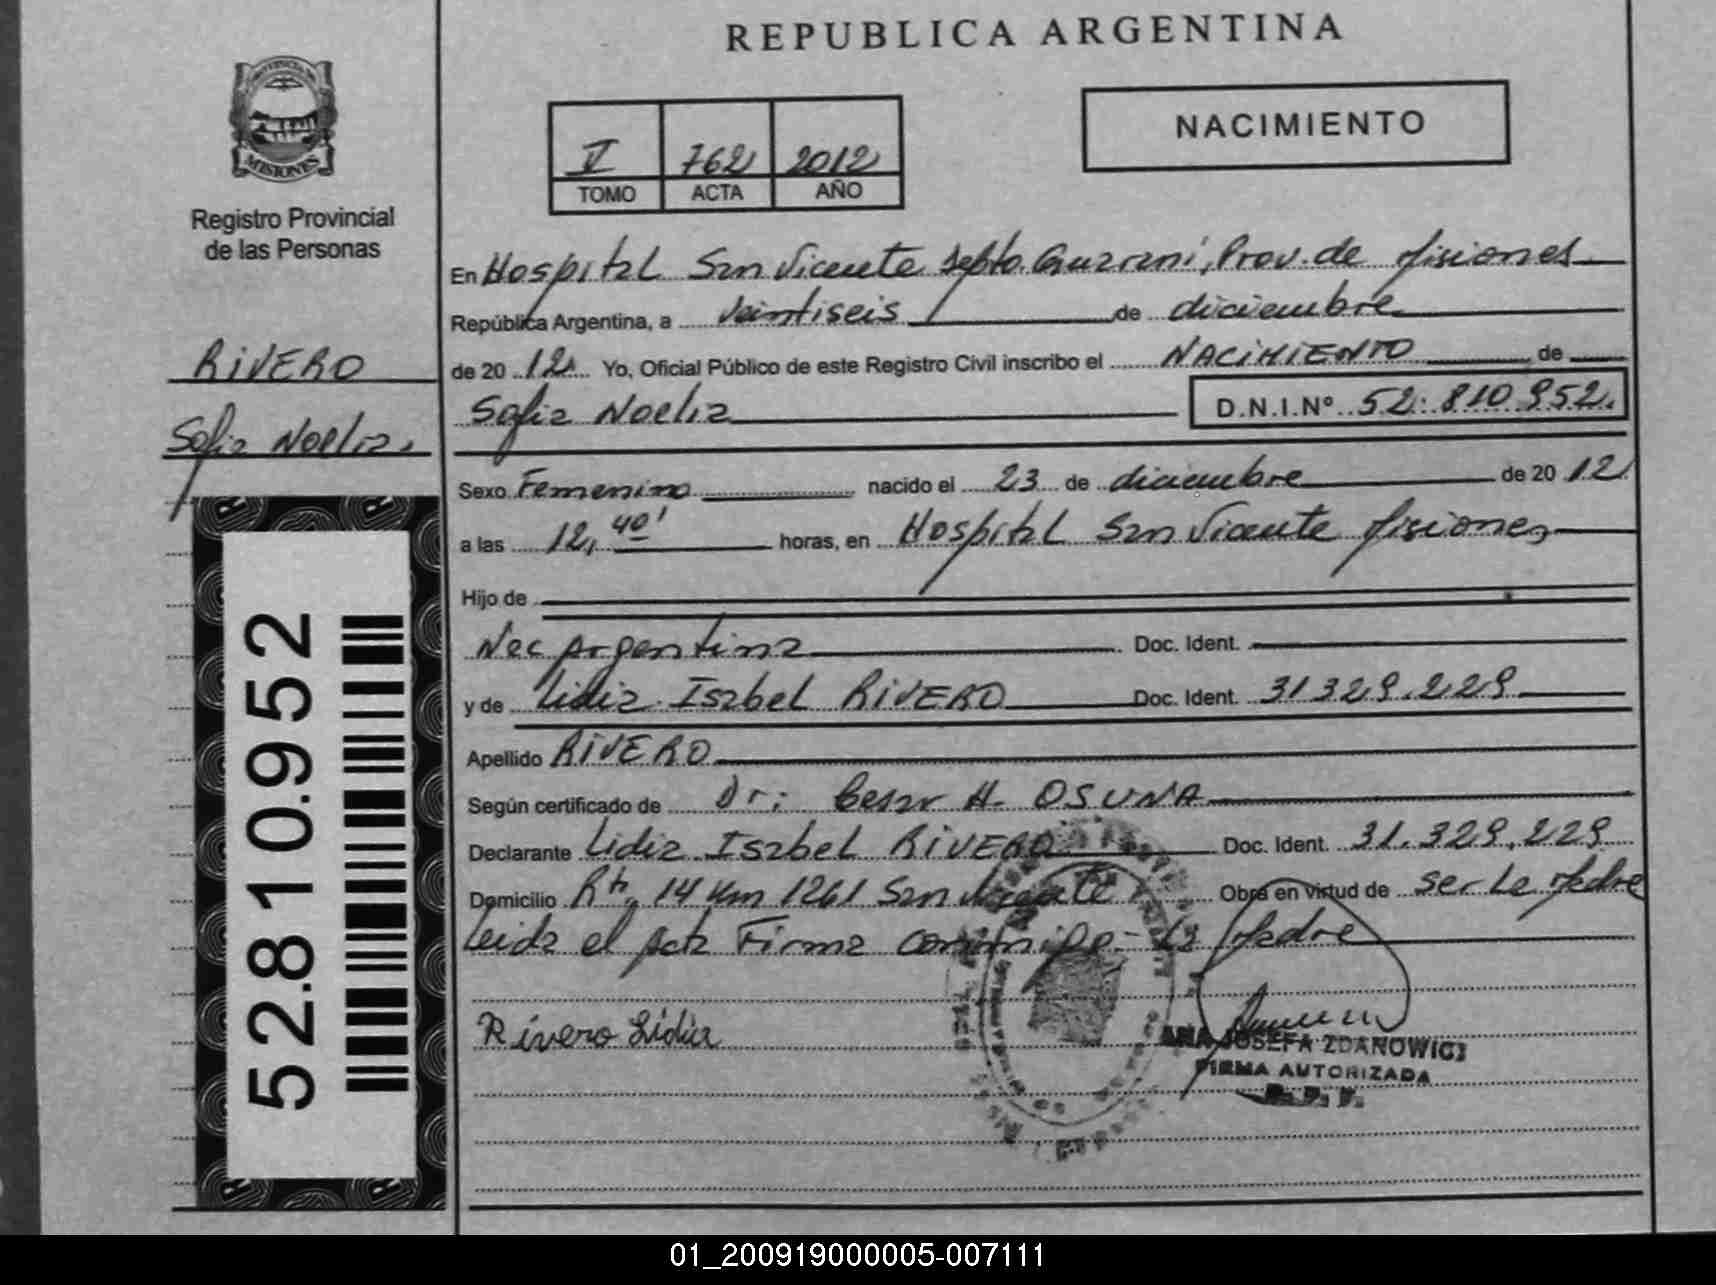 REPUBLICA ARGENTINA
NACIMIENTO
V 762 2012
TOMO ACTA AÑO
MISIONES
Registro Provincial
de las Personas
RIVERO
Sofia Noelia.
52.810.952
En Hospital San Vicente Depto Guarani, Prov. de Misiones
República Argentina, a veintiseis de diciembre
de 2012 Yo, Oficial Público de este Registro Civil inscribo el NACIMIENTO de
Sofia Noelia D.N.I.Nº 52.810952.
Sexo Femenino nacido el 23 de diciembre de 2012
a las 12,40' horas, en Hospital San Vicente Misiones
Hijo de
Nac Argentina Doc. Ident.
y de Lidia Isabel RIVERO Doc. Ident. 31329.229
Apellido RIVERO
Según certificado de Dr: Cesar H. OSUNA
Declarante Lidia Isabel RIVERO Doc. Ident. 31.329.229
Domicilio Rta. 14 Km 1261 San Vicente Obra en virtud de ser La Madre
Leida el Acta Firma conmigo- La Madre
Rivero Lidia
ANA JOSEFA ZDANOWICZ
FIRMA AUTORIZADA
R. P. P.
01_200919000005-007111